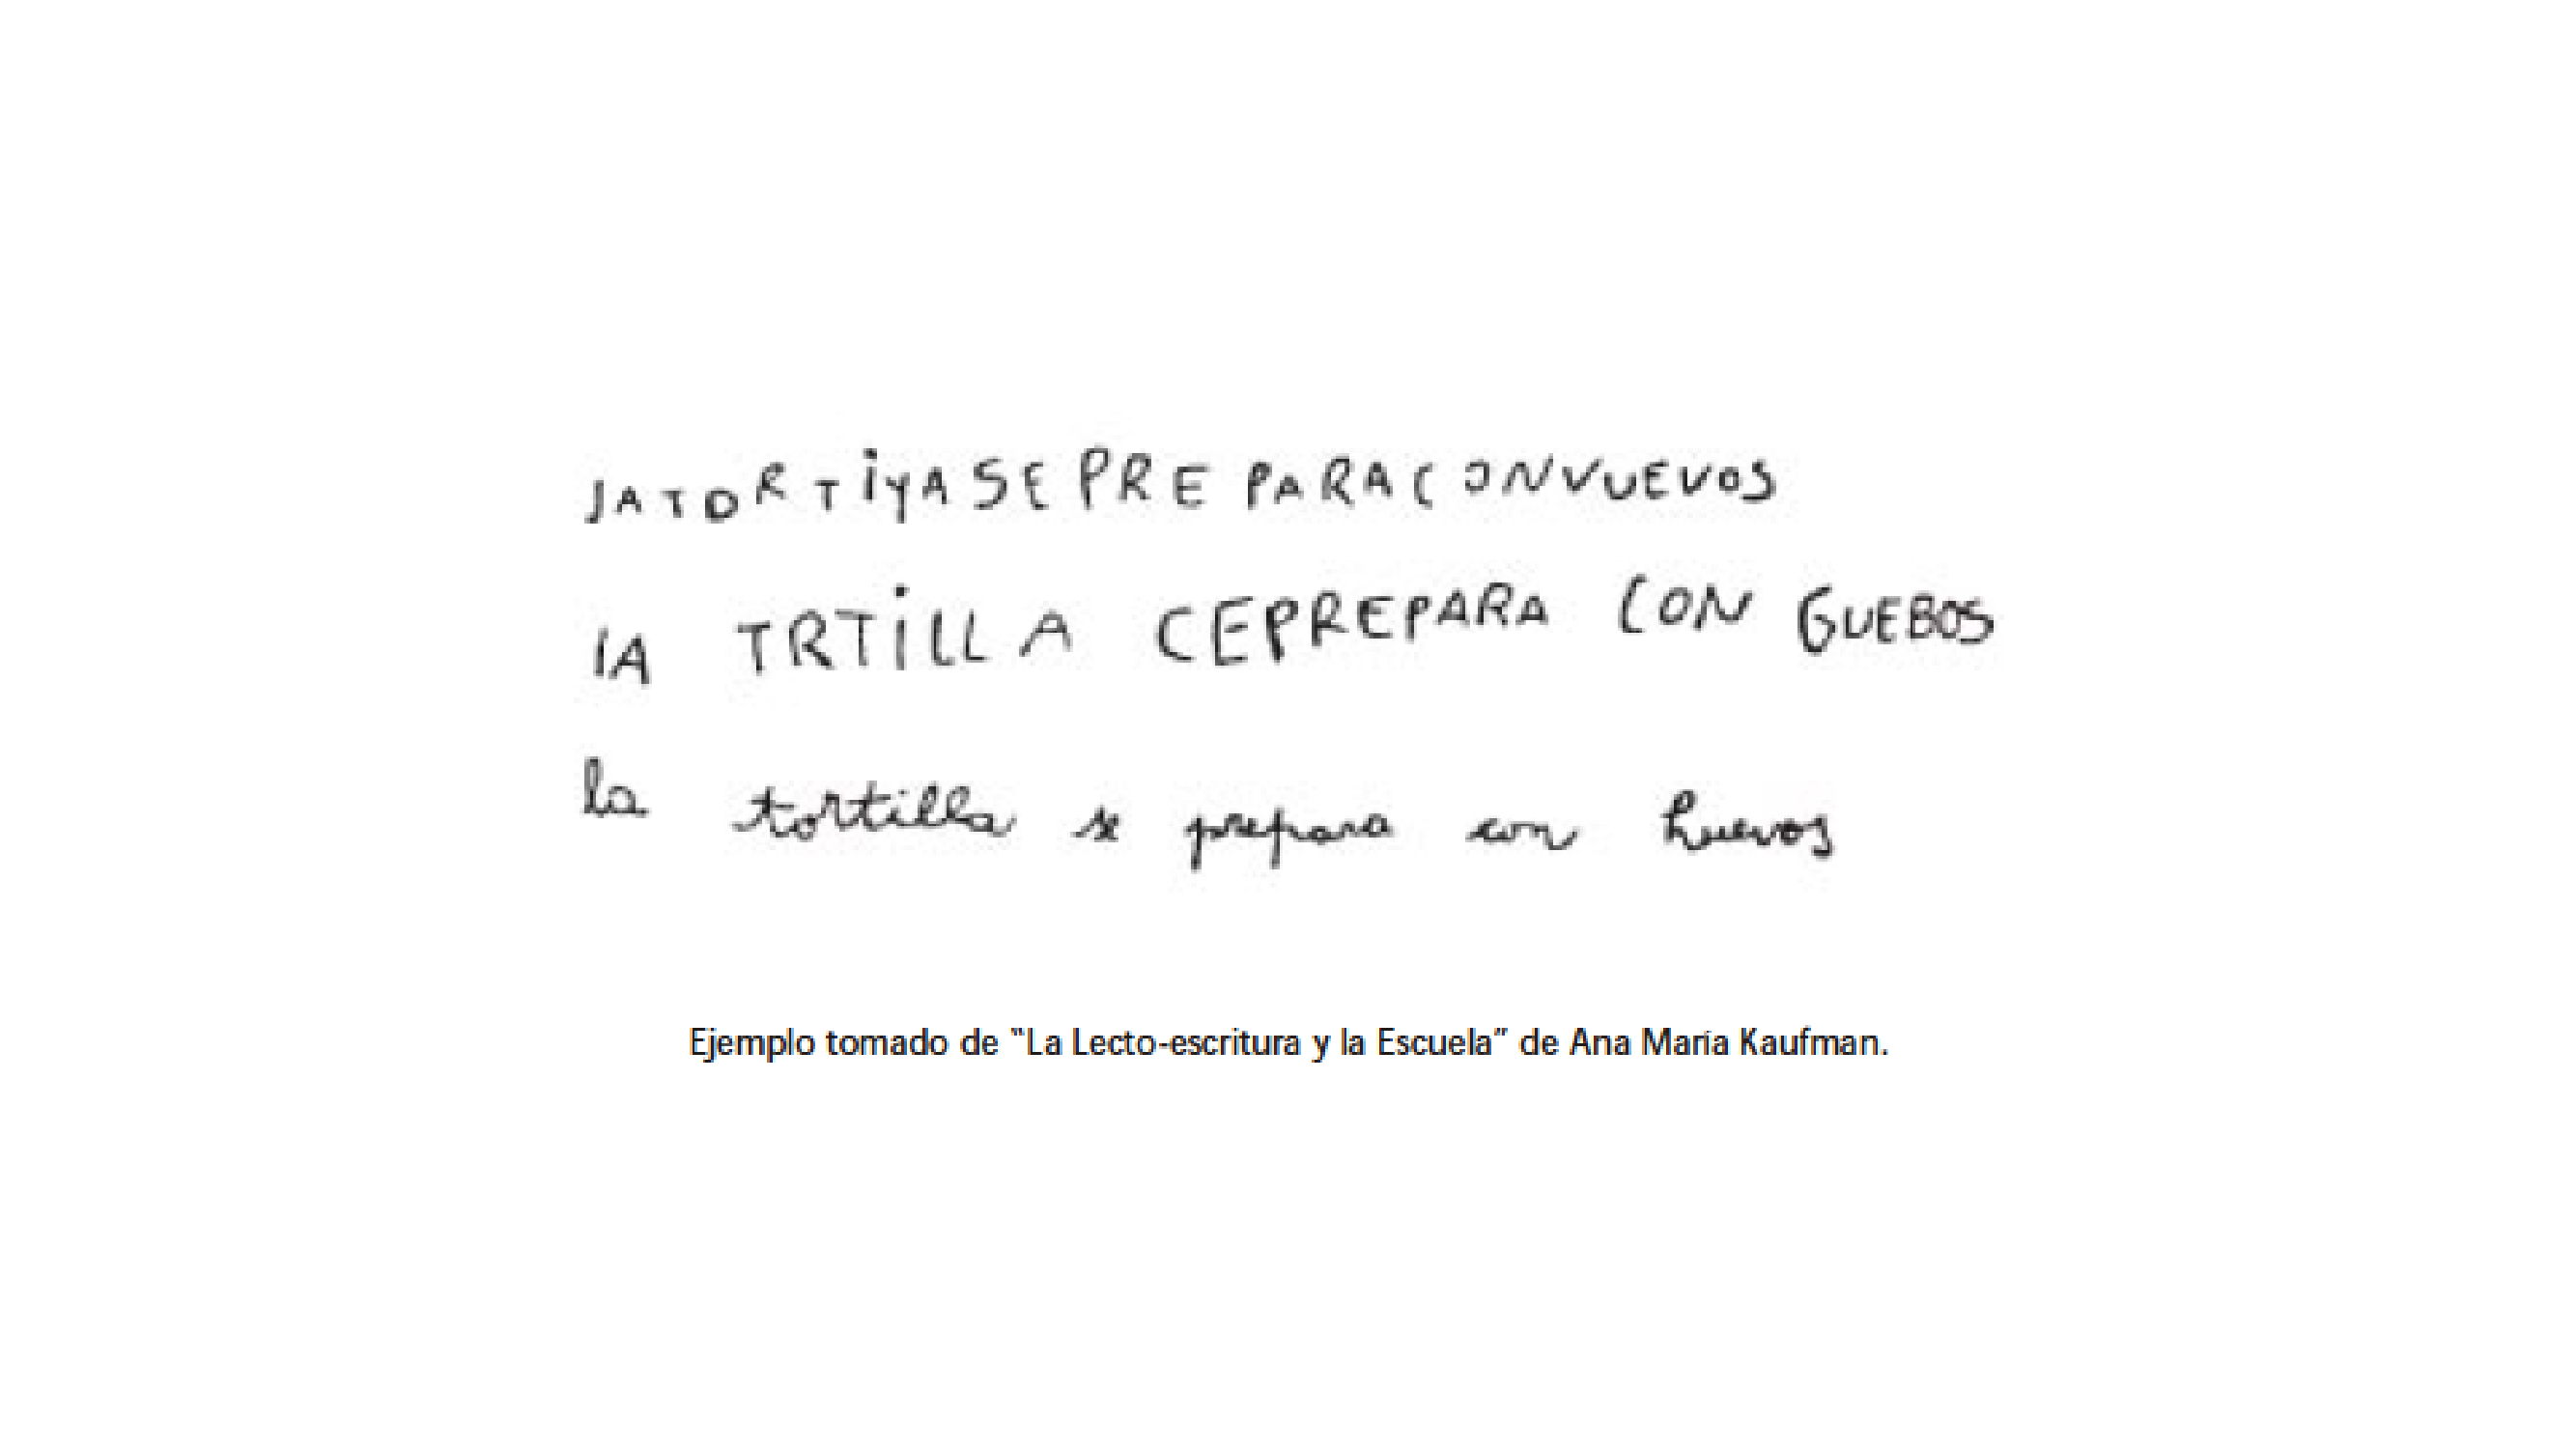 JATORTiYASEPREPARACONVUEVOS
lA TRTiLLA CEPREPARA CON GUEBOS
la tortilla se prepara con huevos
Ejemplo tomado de “La Lecto-escritura y la Escuela” de Ana María Kaufman.